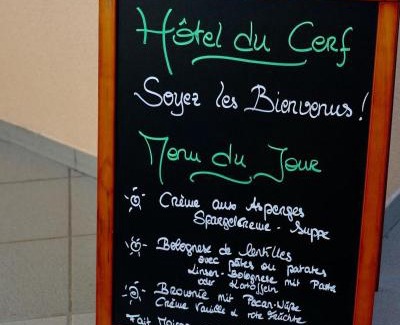 Hôtel du Cerf
Soyez les Bienvenus!
Menu du Jour
Crème aux Asperges
Spargelcreme - Suppe
Bolognese de lentilles
avec pâtes ou patates
Linsen-Bolognese mit Pasta
oder Kartoffeln
Brownie mit Pecan-Nüße
Crème Vanille & rote Früchte
Fait Maison